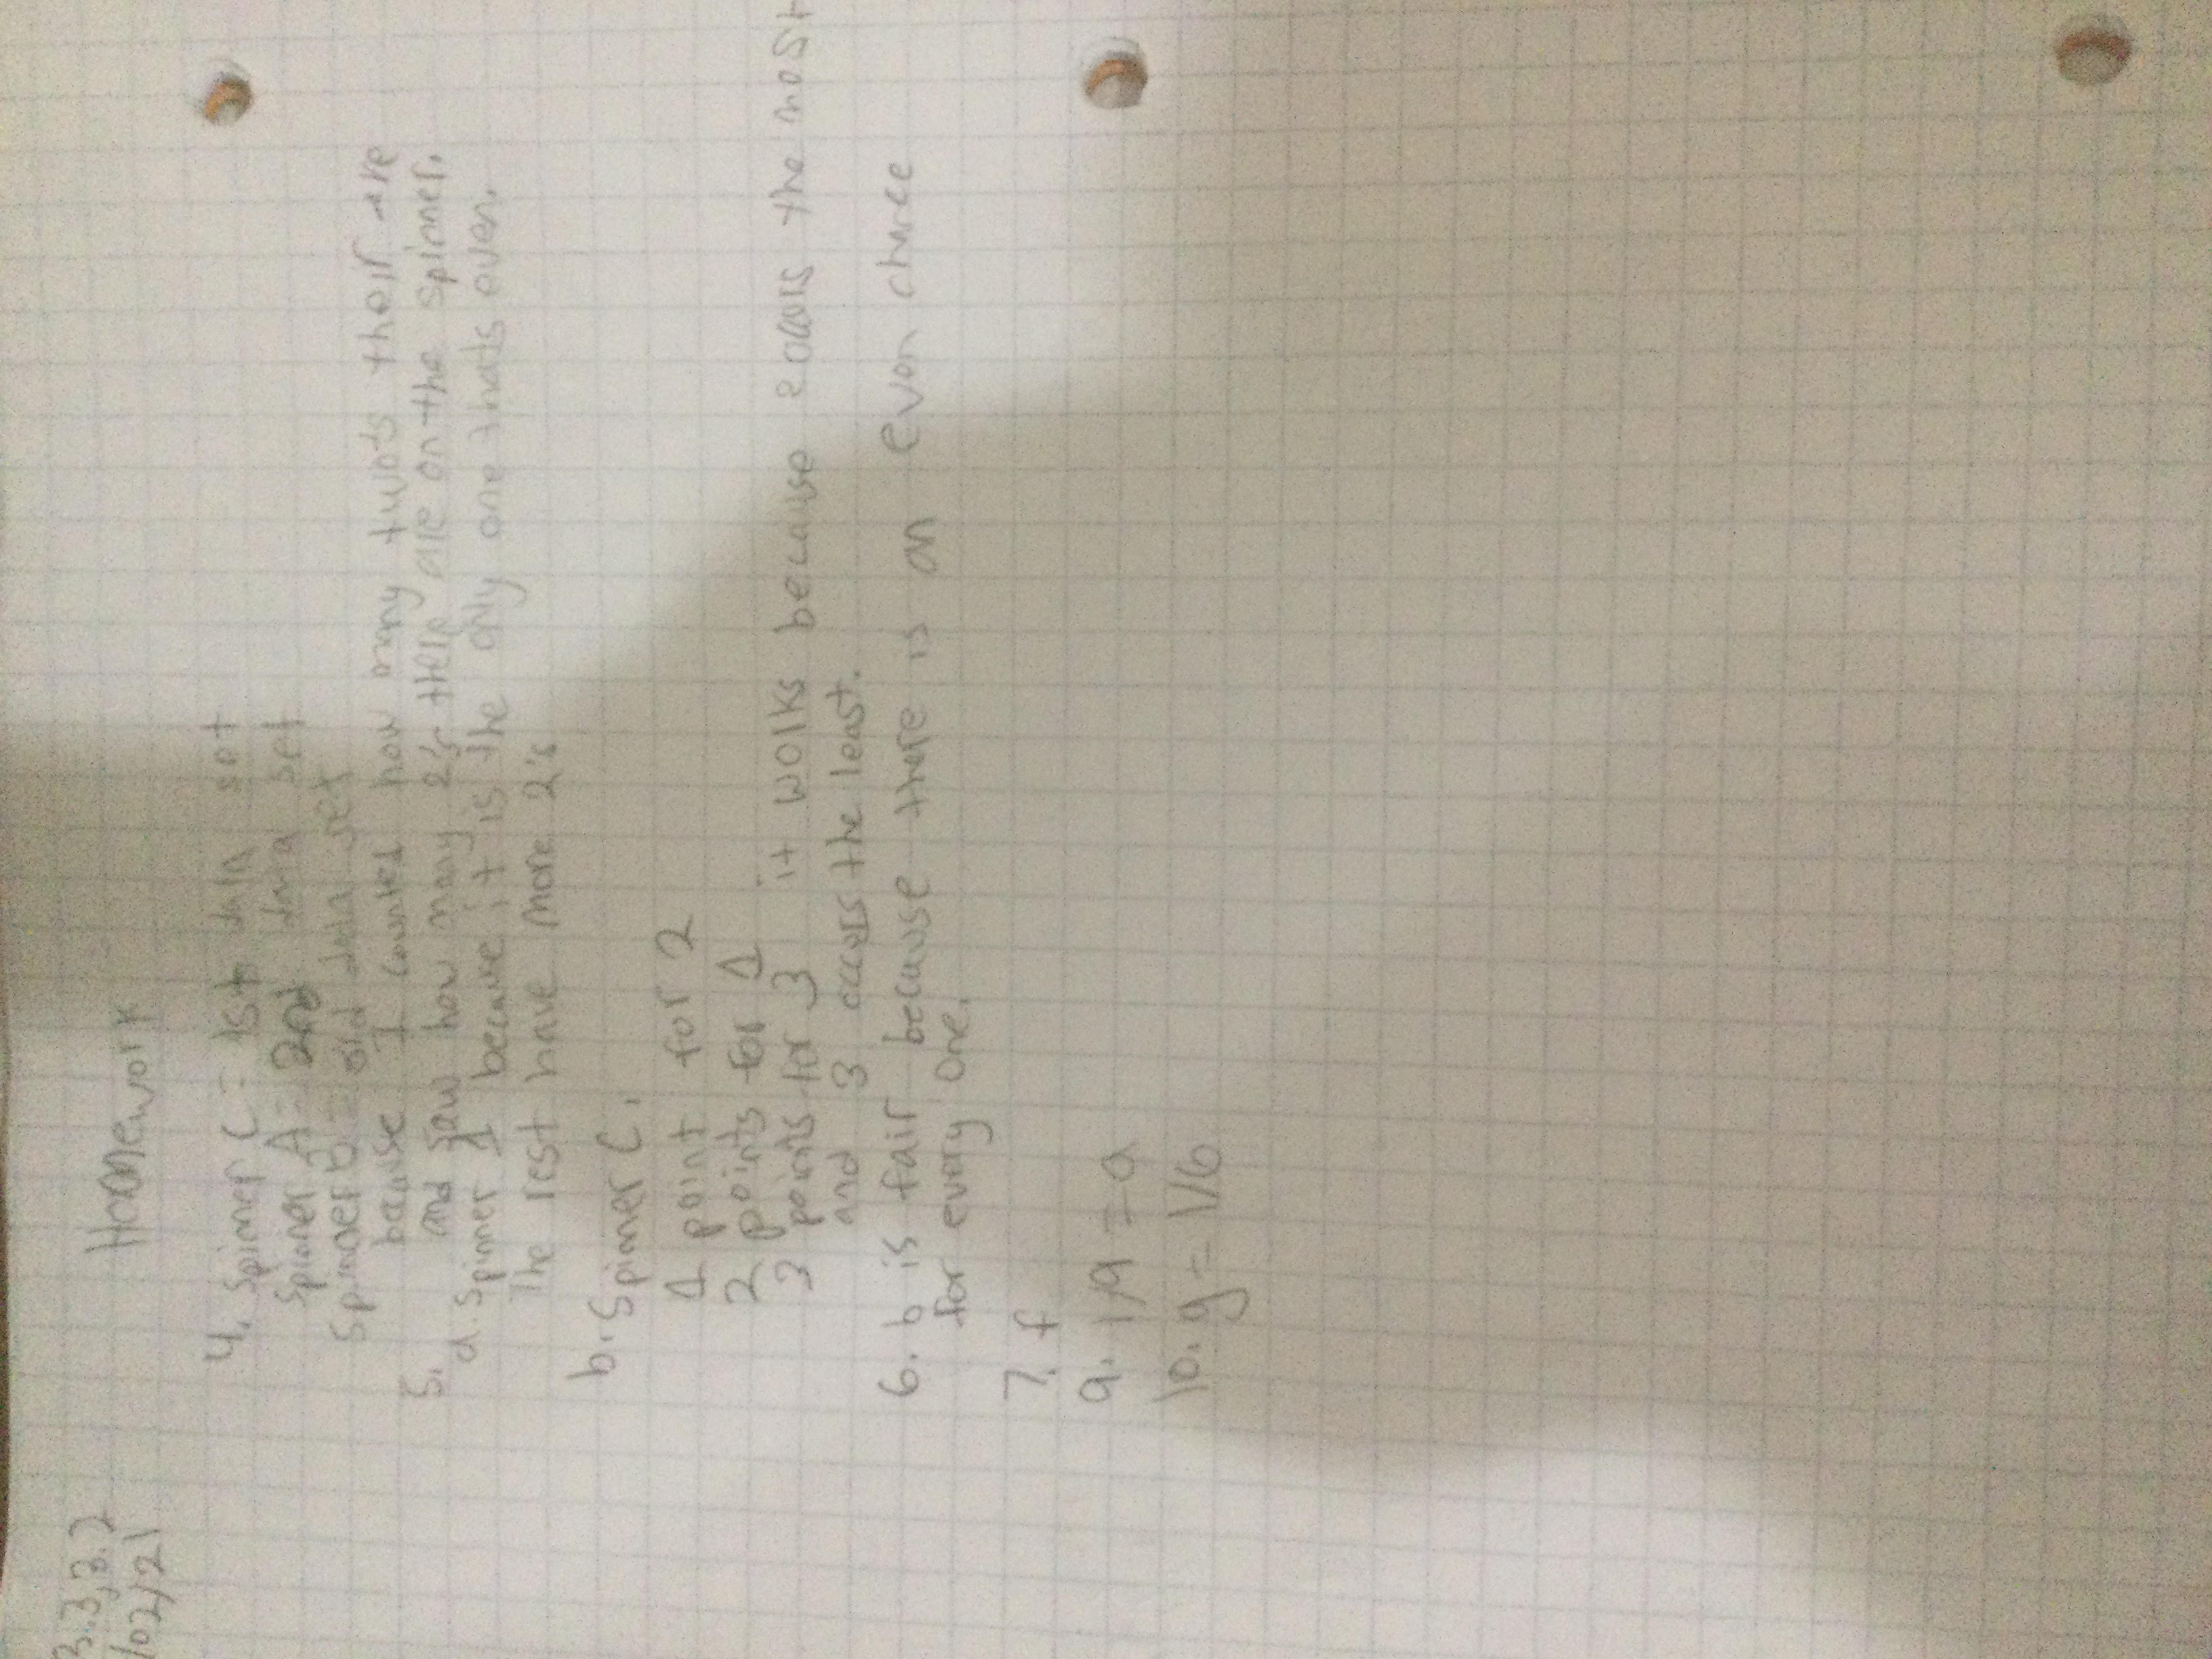 3.3,3.2
102/21
Homework
4. Spinner C = 1st data set
Spinner A = 2nd data set
Spinner B = data set
because I counted how many twots their are
and saw how many 2's there are on the spinner.
5.
a. Spinner A because it is the only one thats even.
The rest have more 2's
b. Spinner C.
1 point for 2
2 points for 1
3 points for 3 it works because 2 occurs the most
and 3 occurs the least.
6. b is fair because there is an even chance
for every one.
7. f
9. 1/9 = a
10. g = 1/6